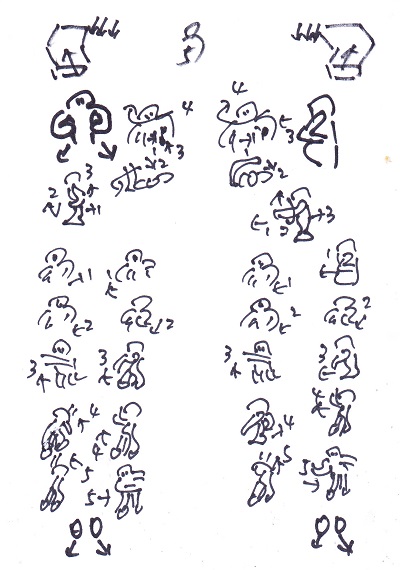 5
4 4
3 3
2 2
3
2 1 1 2 3
1 1 1 1
2 2 2 2
3 3 3 3
4 4 4 4
5 5 5 5